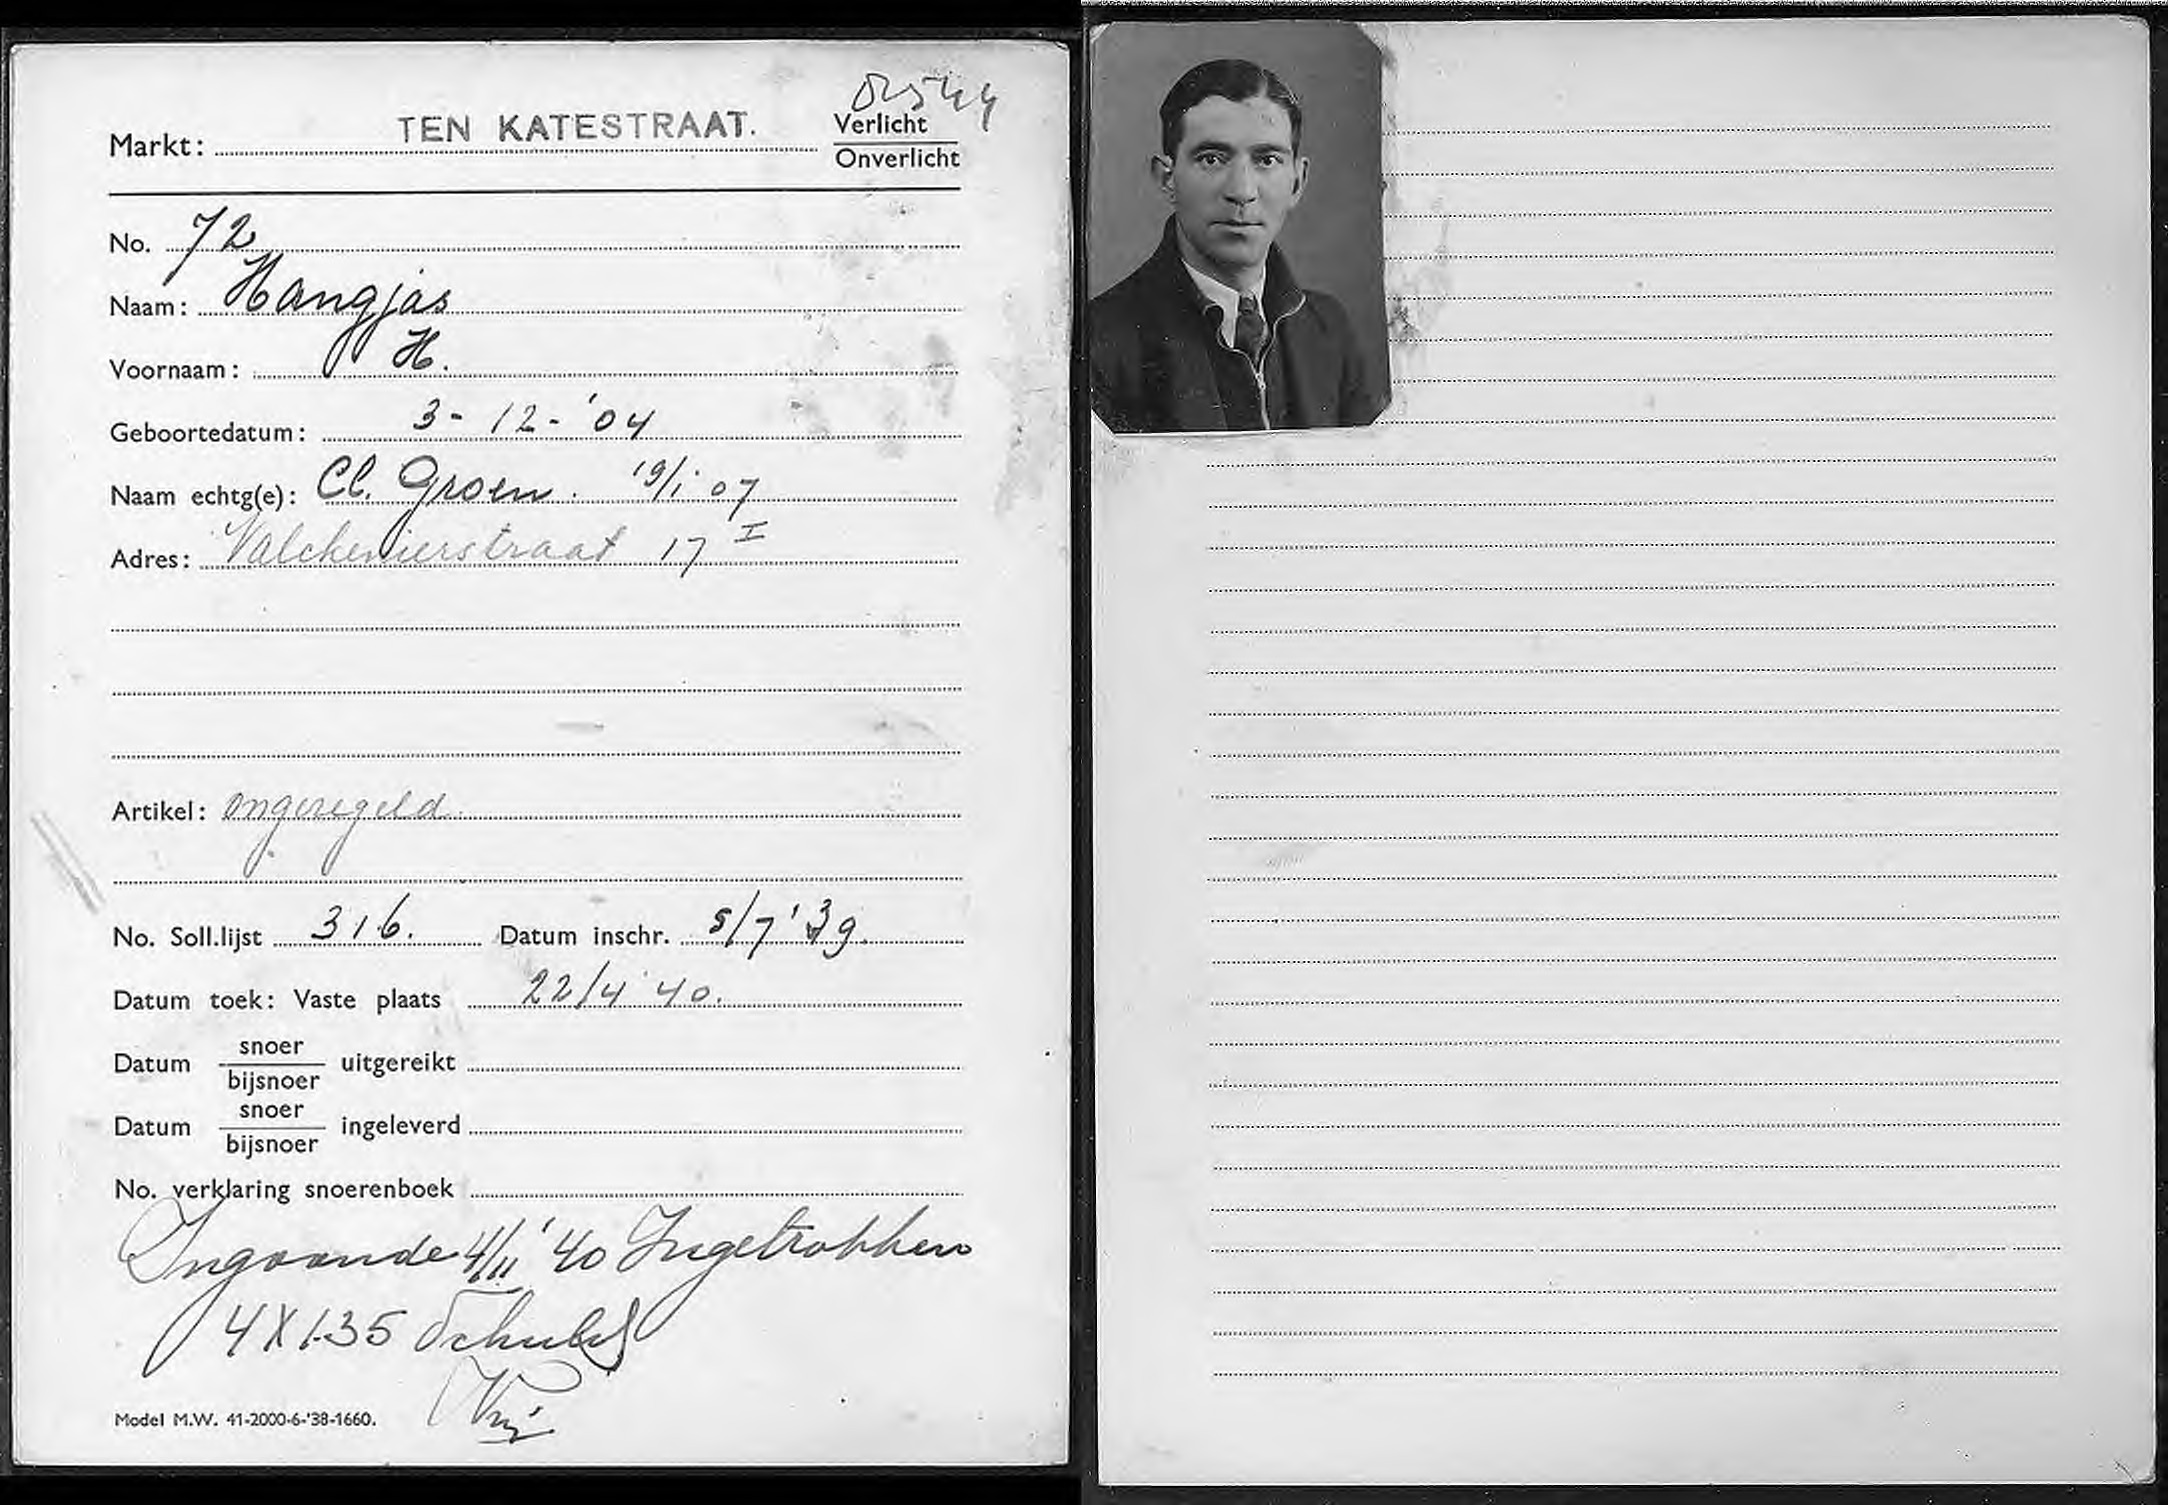 Markt: TEN KATESTRAAT.
Verlicht
Onverlicht
No. 72
Naam: Hangjas
Voornaam: H.
Geboortedatum: 3-12-'04
Naam echtg(e): Cl. Groen. 19/1 07
Adres: Valckenierstraat 17 I
Artikel: ongeregeld
No. Soll.lijst 316. Datum inschr. 5/7 '39.
Datum toek: Vaste plaats 22/4 '40.
Datum snoer/bijsnoer uitgereikt
Datum snoer/bijsnoer ingeleverd
No. verklaring snoerenboek
Ingaande 4/11 '40 Ingetrokken
4 X 1.35 Schuld
Model M.W. 41-2000-6-'38-1660.